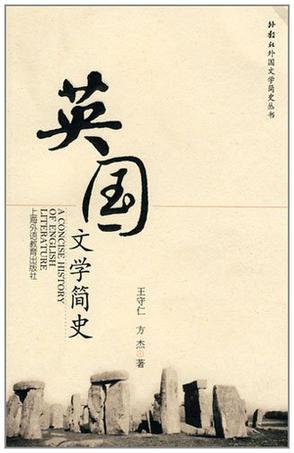 外教社外国文学简史丛书
英国
文学简史
A CONCISE HISTORY
OF ENGLISH
LITERATURE
上海外语教育出版社
王守仁 方杰◎著